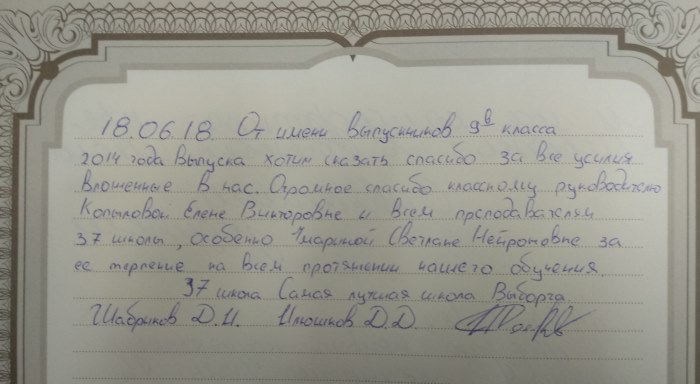 18.06.18. От имени выпускников 9в класса
2014 года выпуска хотим сказать спасибо за все усилия
вложенные в нас. Огромное спасибо классному руководителю
Копыловой Елене Викторовне и всем преподавателям
37 школы, особенно Светлане за
ее терпение на всем протяжении нашего обучения.
37 школа Самая лучшая школа Выборга
Шабриков Д.И. Илюшков Д.Д.